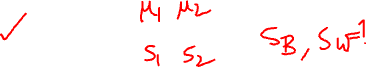 ✓ μ₁ μ₂
S₁ S₂ S_B, S_W=?